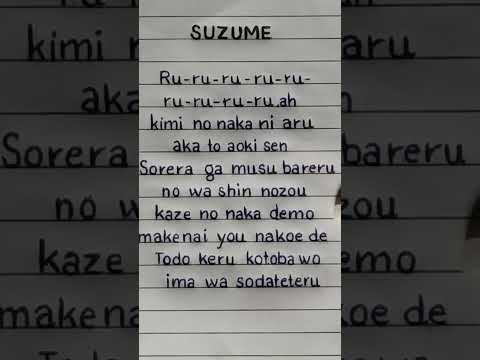 SUZUME
Ru-ru-ru-ru-ru-
ru-ru-ru-ru.ah
kimi no naka ni aru
aka to aoki sen
Sorera ga musu bareru
no wa shin nozou
kaze no naka demo
makenai you nakoe de
Todo keru kotoba wo
ima wa sodateteru